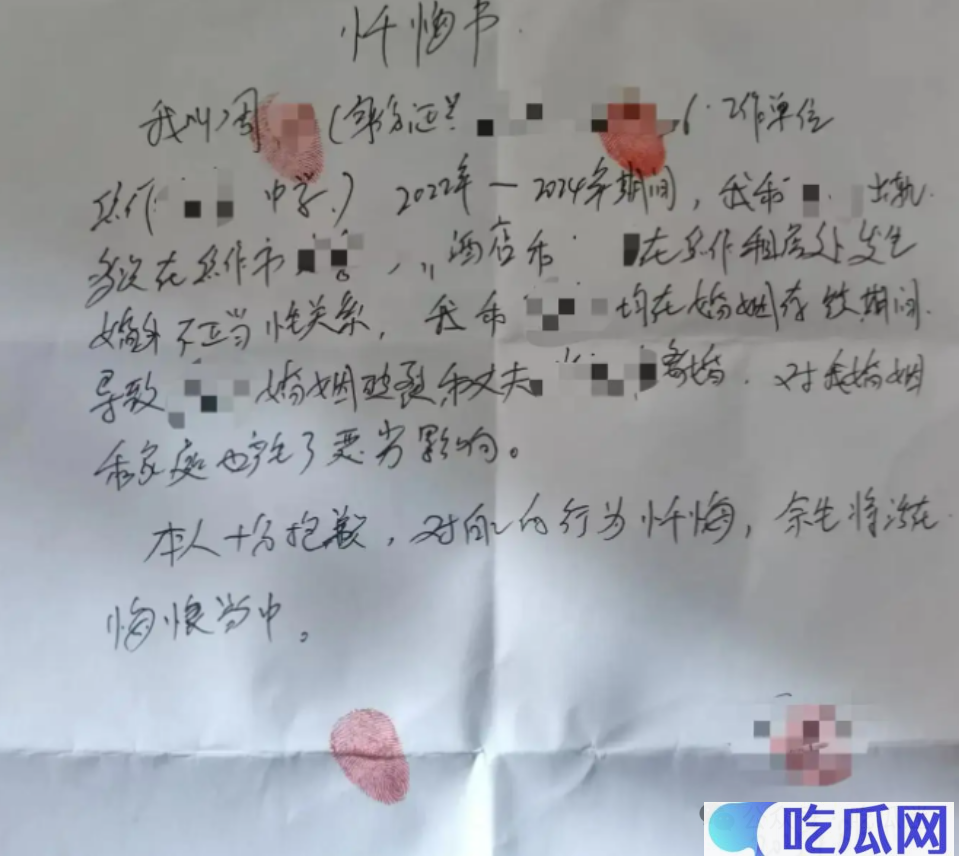 忏悔书.
我叫周 (身份证: ), 工作单位
焦作 中学.) 2022年—2024年期间, 我和 出轨.
多次在焦作市 酒店和 在焦作租房处发生
婚外不正当性关系, 我和 均在婚姻存续期间.
导致 婚姻破裂和丈夫 离婚. 对我婚姻
和家庭也产生了恶劣影响。
本人十分抱歉, 对自己的行为忏悔, 余生将活在
悔恨当中。
吃瓜网